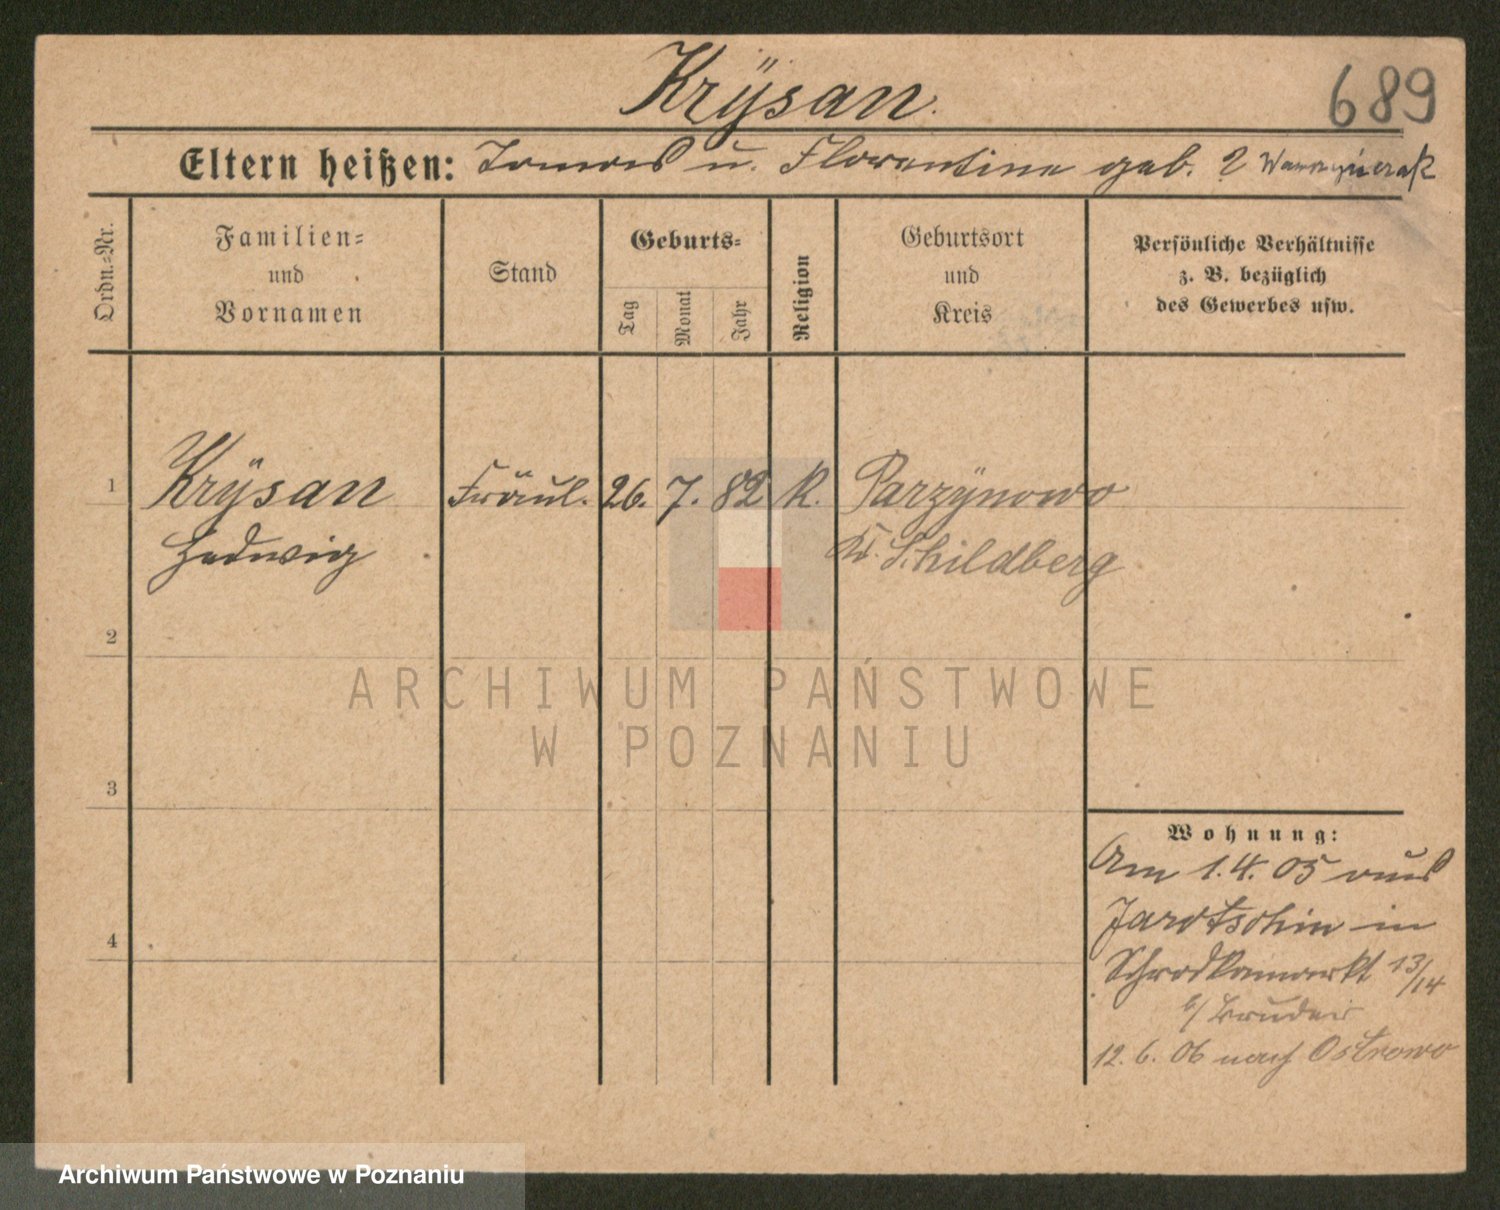 Krÿsan.
689
Eltern heißen: Tomas u. Florentine geb. ? Wawrzyniak
Ordn.-Nr.
Familien-
und
Vornamen
Stand
Geburts-
Tag
Monat
Jahr
Religion
Geburtsort
und
Kreis
Persönliche Verhältnisse
z. B. bezüglich
des Gewerbes usw.
1 Krÿsan Fräul. 26. 7. 82 K. Parzÿnowo
Hedwig Kr. Schildberg
2
ARCHIWUM PAŃSTWOWE
W POZNANIU
3
Wohnung:
Am 1.4.05 aus
Jarotschin in
4
Schrodkamarkt 13/14
b/ Bruder
12.6.06 nach Ostrowo
Archiwum Państwowe w Poznaniu